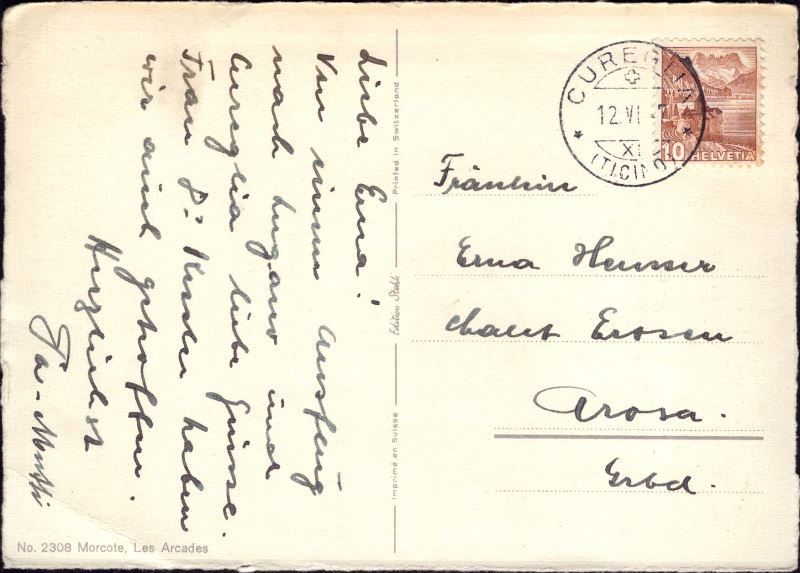 Liebe Erna!
Von einem Ausflug
nach Lugano und
Cureglia liebe Grüsse.
Frau Dr. haben
wir auch getroffen.
Herzlichst
Pa-Mutti
No. 2308 Morcote, Les Arcades
Printed in Switzerland
Edition Stehli
Imprimé en Suisse
CUREGLIA
12.VI
XI
(TICINO)
10 HELVETIA
Fräulein
Erna Heusser
Chalet Erosen
Arosa.
Grbd.